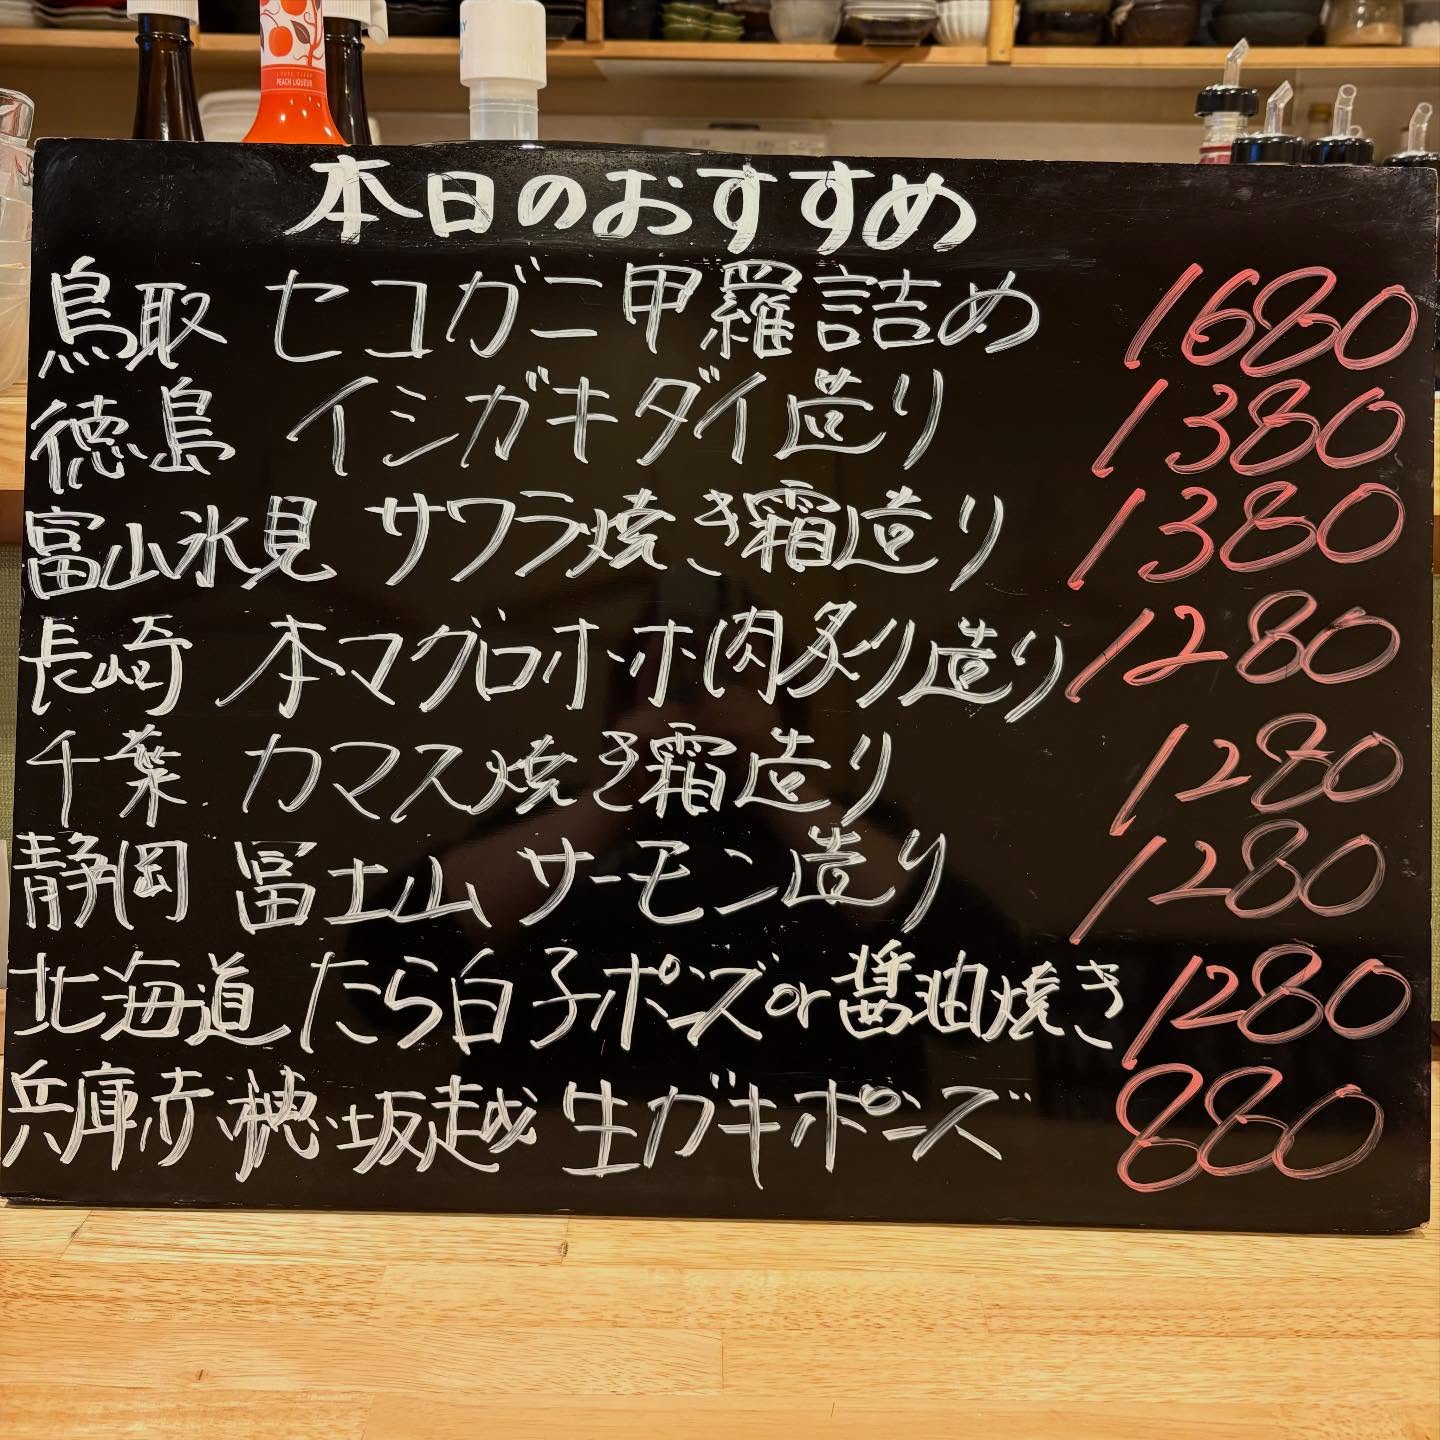 PEACH LIQUEUR
本日のおすすめ
鳥取 セコガニ甲羅詰め 1680
徳島 イシガキダイ造り 1380
富山氷見 サワラ焼き霜造り 1380
長崎 本マグロホホ肉炙り造り 1280
千葉 カマス焼き霜造り 1280
静岡 富士山サーモン造り 1280
北海道 たら白子ポンズor醤油焼き 1280
兵庫赤穂坂越 生ガキポンズ 880